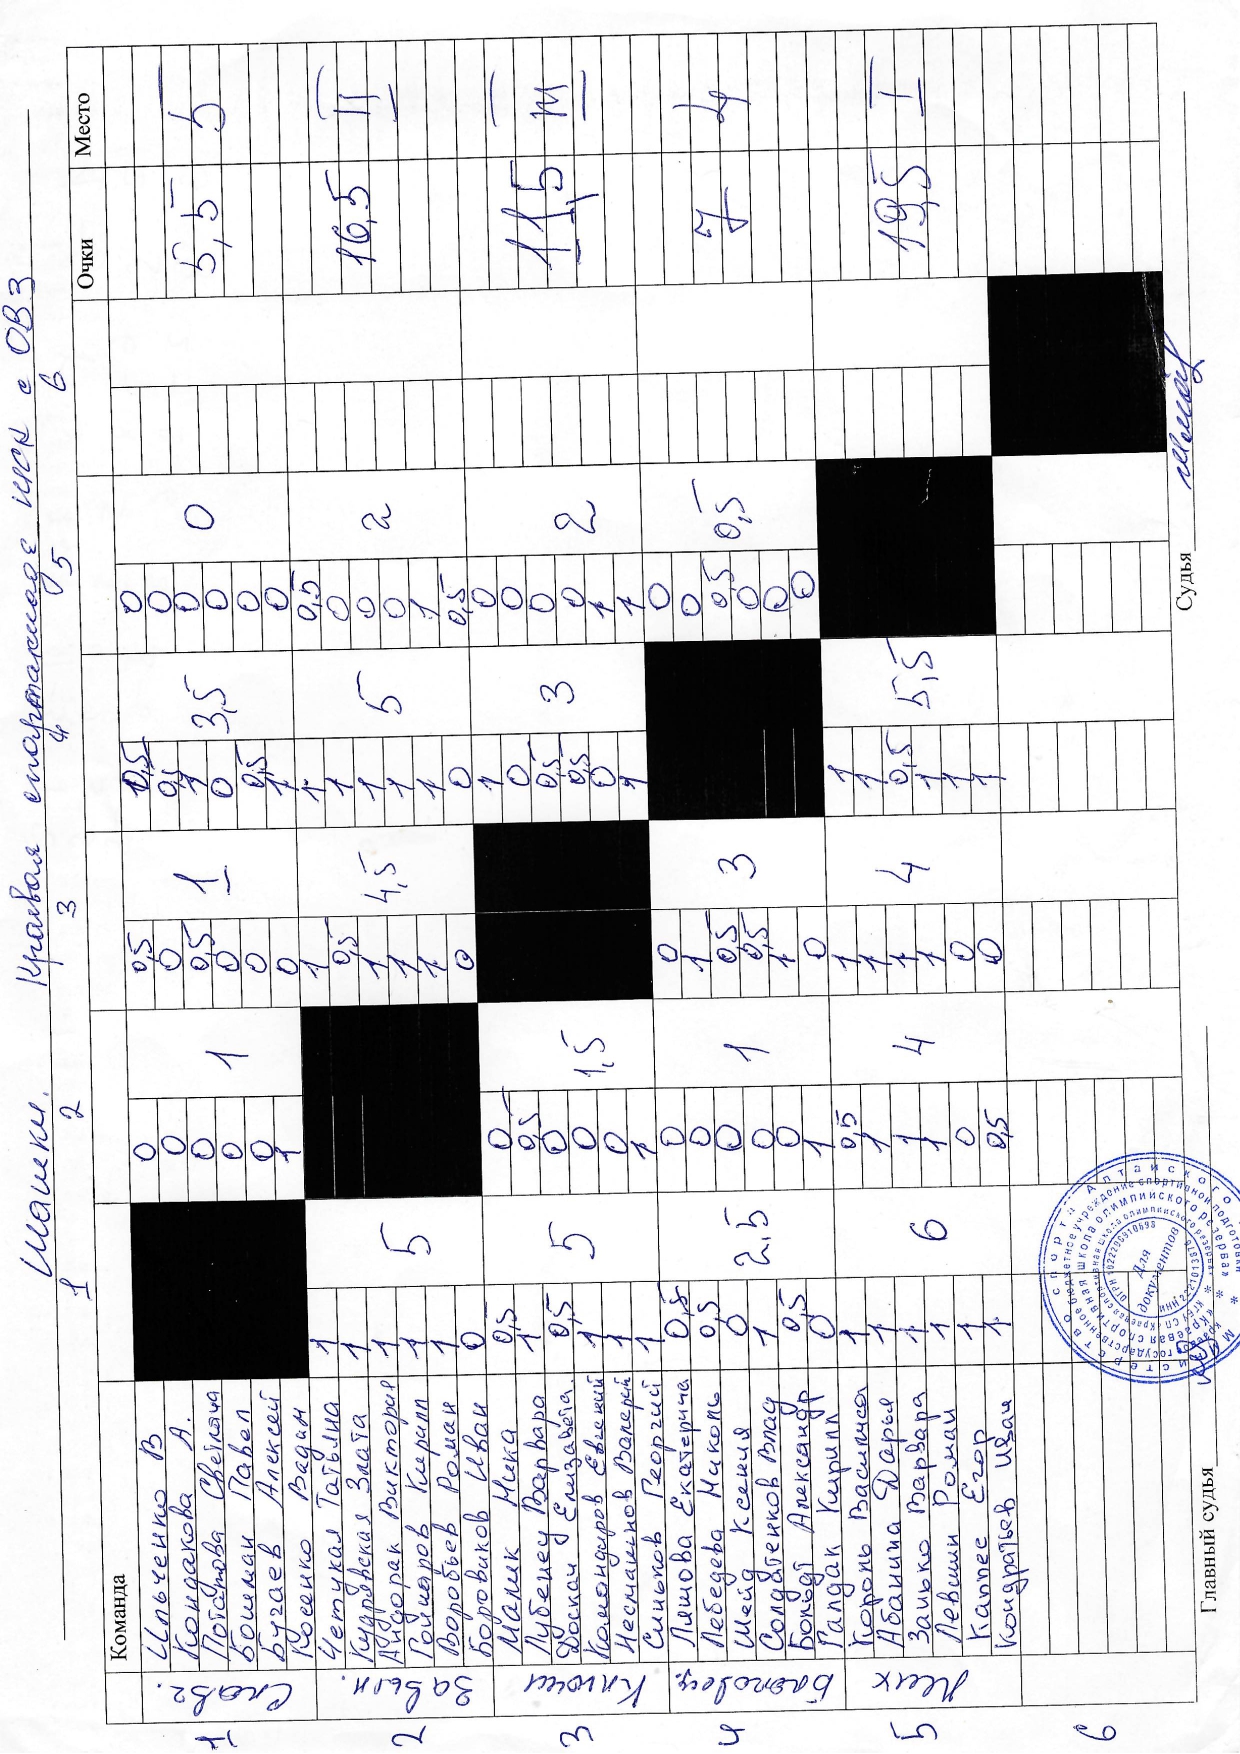 Шашки. Краевая спартакиада ШСК с ОВЗ
1 2 3 4 5 6
Команда Очки Место
1 Славг.
Ильченко В 0 0,5 0,5 0
Кондакова А. 0 0 0,5 0
Потапова Светлана 0 0,5 1 0
Бошман Павел 0 0 0 0
Бугаев Алексей 0 0 0,5 0
Косенко Вадим 1 0 1 0
1 1 3,5 0 5,5 5
2 Завьял.
Чепуткая Татьяна 1 1 1 0,5
Кудрявская Злата 1 0,5 1 0
Андорак Виктория 1 1 1 0
Гоймаров Кирилл 1 1 1 0
Воробьев Роман 1 1 1 1
Боровиков Иван 0 0 0 0,5
5 4,5 5 2 16,5 II
3 Ключи
Малик Ника 0,5 0 1 0
Лубенец Варвара 1 0,5 0 0
Доскач Елизавета. 0,5 0 0,5 0
Командиров Евгений 1 0 0,5 0
Несмашнов Валерий 1 0 0 1
Синьков Георгий 1 1 1 1
5 1,5 3 2 11,5 III
4
Ляшова Екатерина 0,5 0 0 0
Лебедева Николь 0,5 0 1 0
Шейд Ксения 0 0 0,5 0,5
Солдатенков Влад 1 0 0,5 0
Больдт Александр 0,5 0 1 0
Галдак Кирилл 0 1 0 0
2,5 1 3 0,5 7 4
5 Мих
Король Василиса 1 0,5 1 1
Абанина Дарья 1 1 1 1
Занько Варвара 1 1 1 0,5
Левшин Роман 1 1 1 1
Каппес Егор 1 0 0 1
Кондратьев Иван 1 0,5 0 1
6 4 4 5,5 19,5 I
6
Главный судья Судья
Для документов